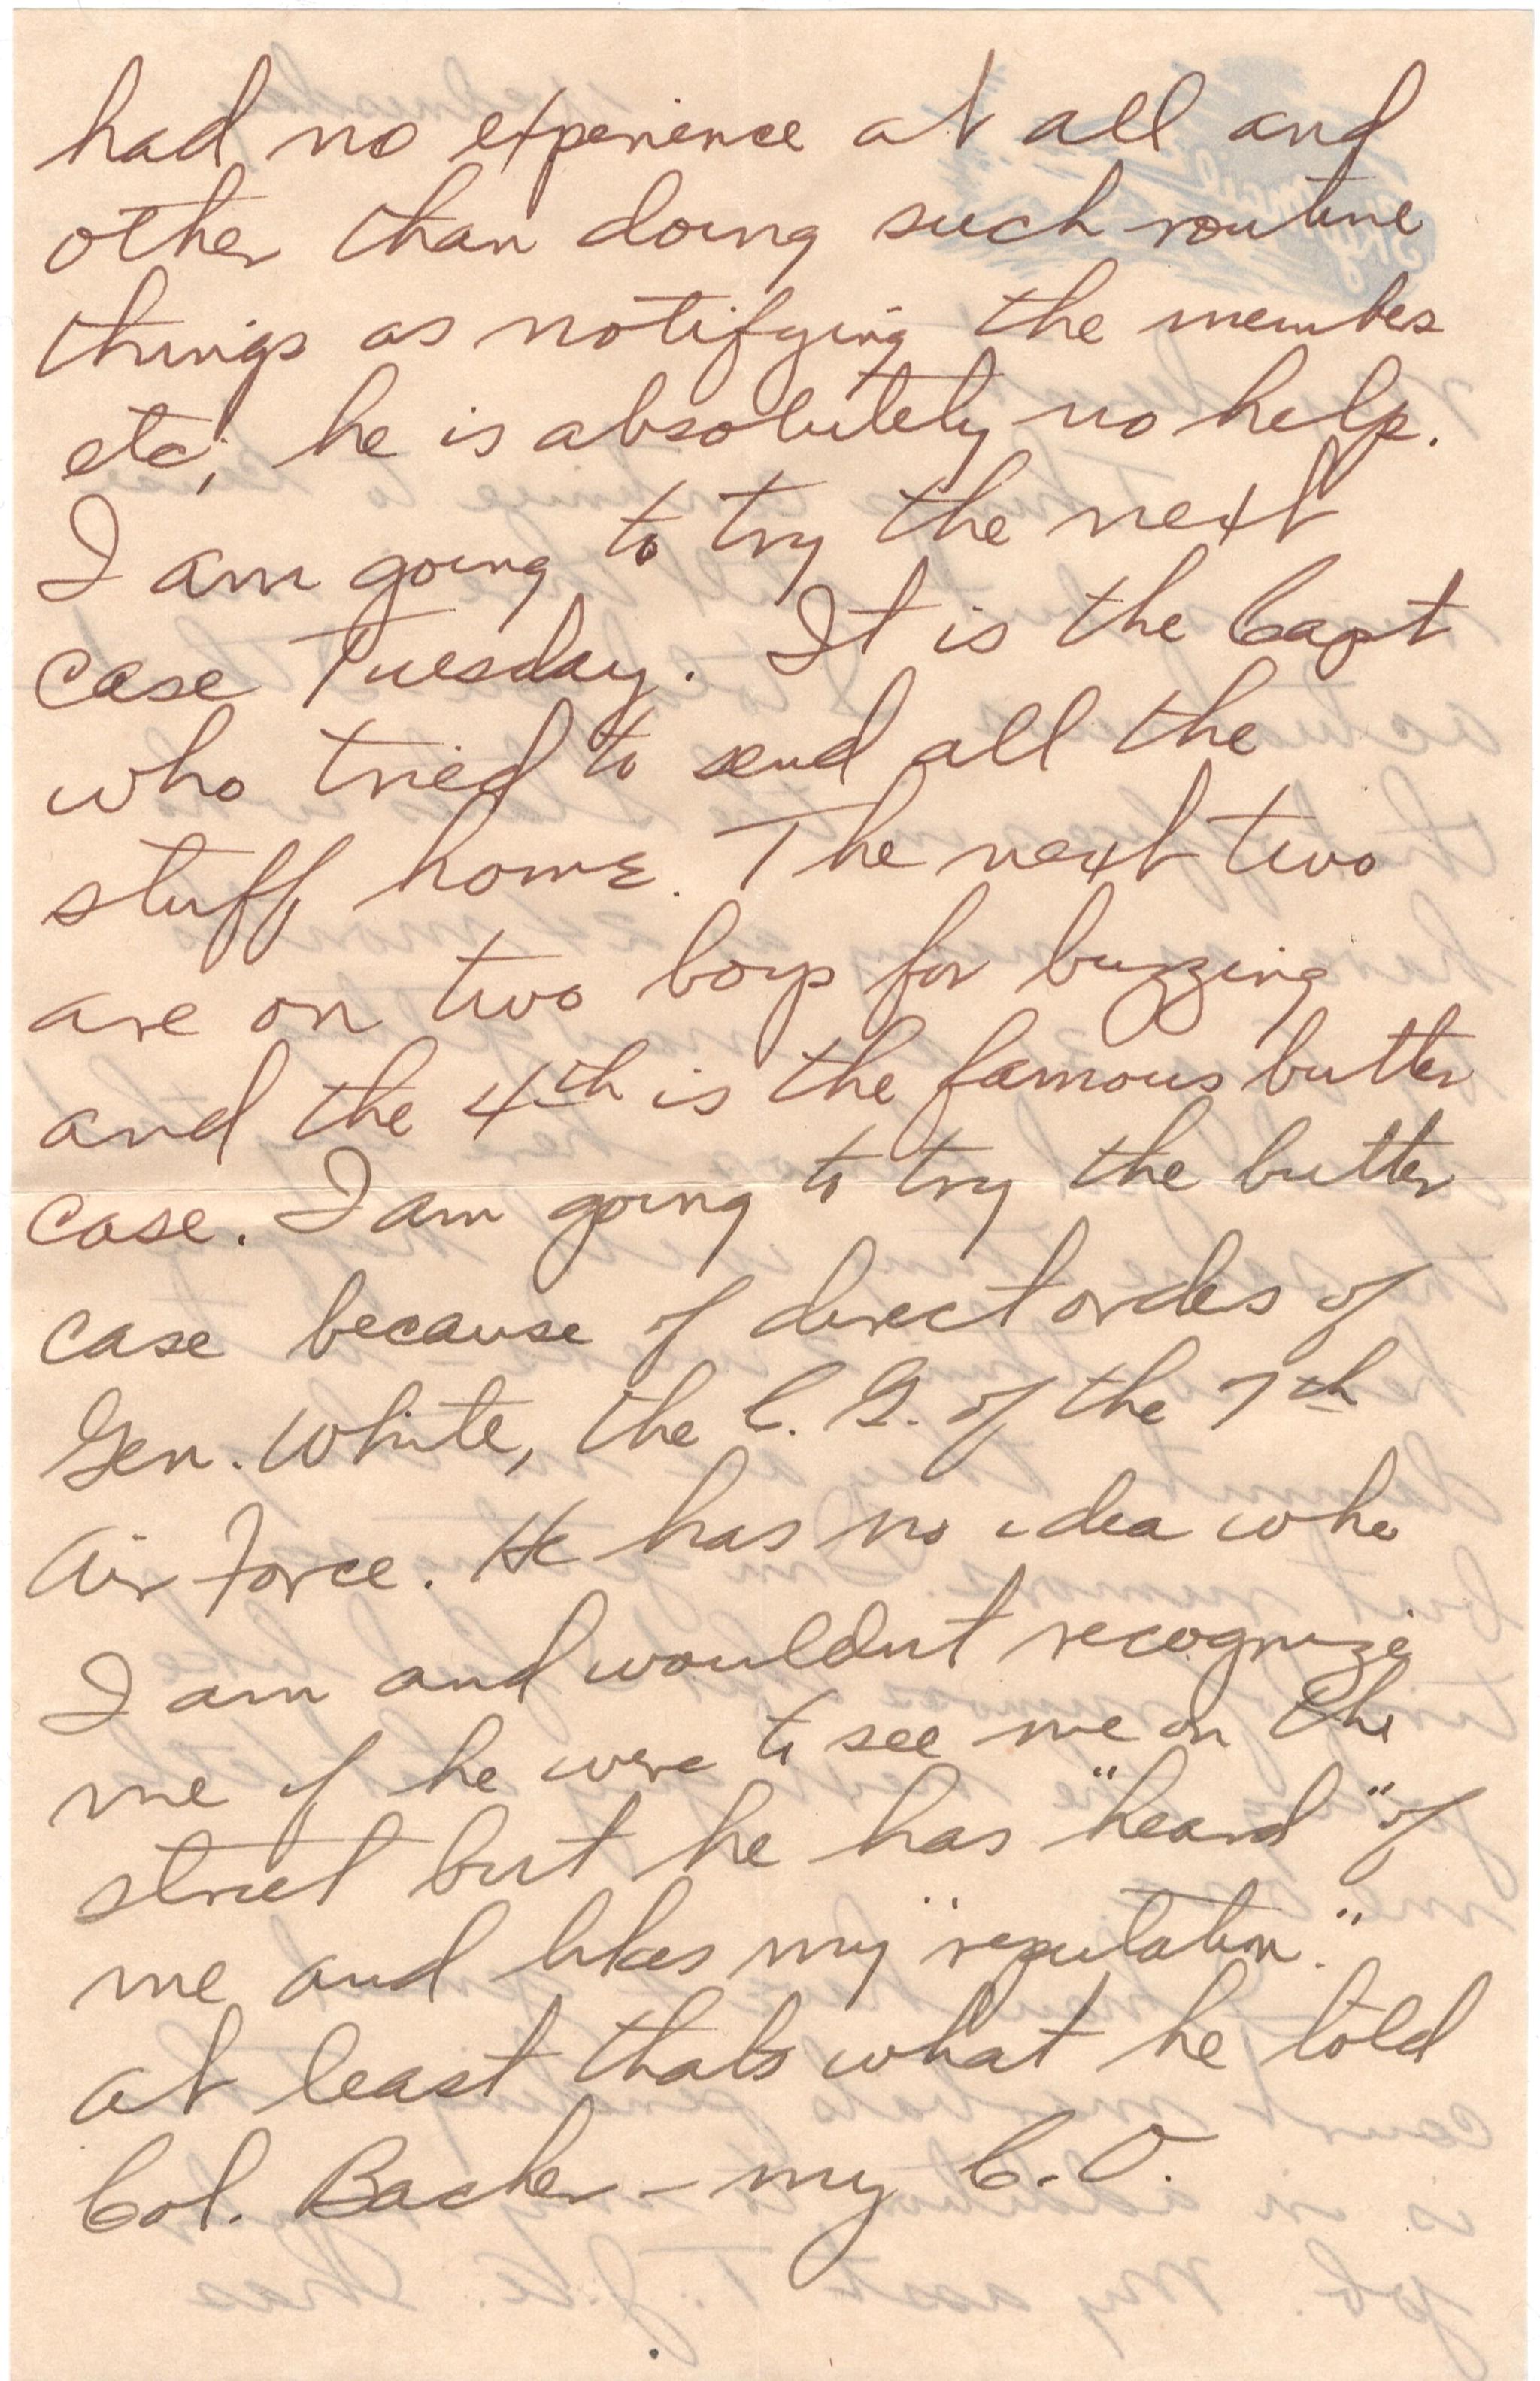 had no experience at all and
other than doing such routine
things as notifying the members
etc; he is absolutely no help.
I am going to try the next
case Tuesday. It is the Capt
who tried to send all the
stuff home. The next two
are on two boys for buzzing
and the 4th is the famous butter
case. I am going to try the butter
case because of direct orders of
Gen. White, the C. G. of the 7th
Air Force. He has no idea who
I am and wouldnt recognize
me if he were to see me on the
street but he has "heard" of
me and likes my "reputation."
At least thats what he told
Col. – my C.O.